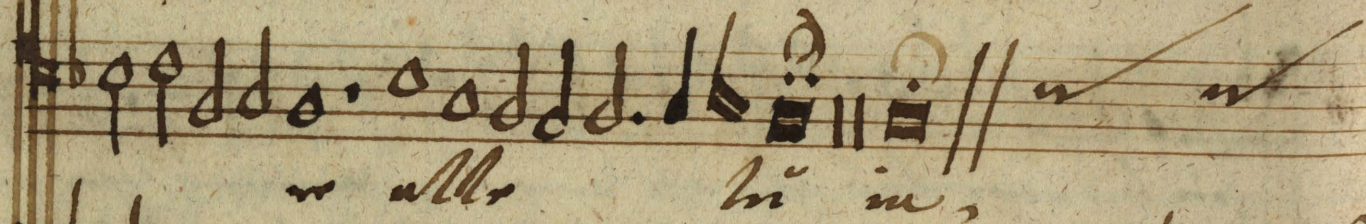 re alle lu ia,